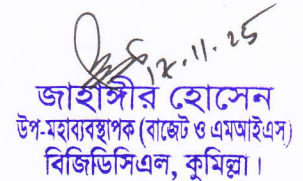 ১৮.১১.২৫
জাহাঙ্গীর হোসেন
উপ-মহাব্যবস্থাপক (বাজেট ও এমআইএস)
বিজিডিসিএল, কুমিল্লা।